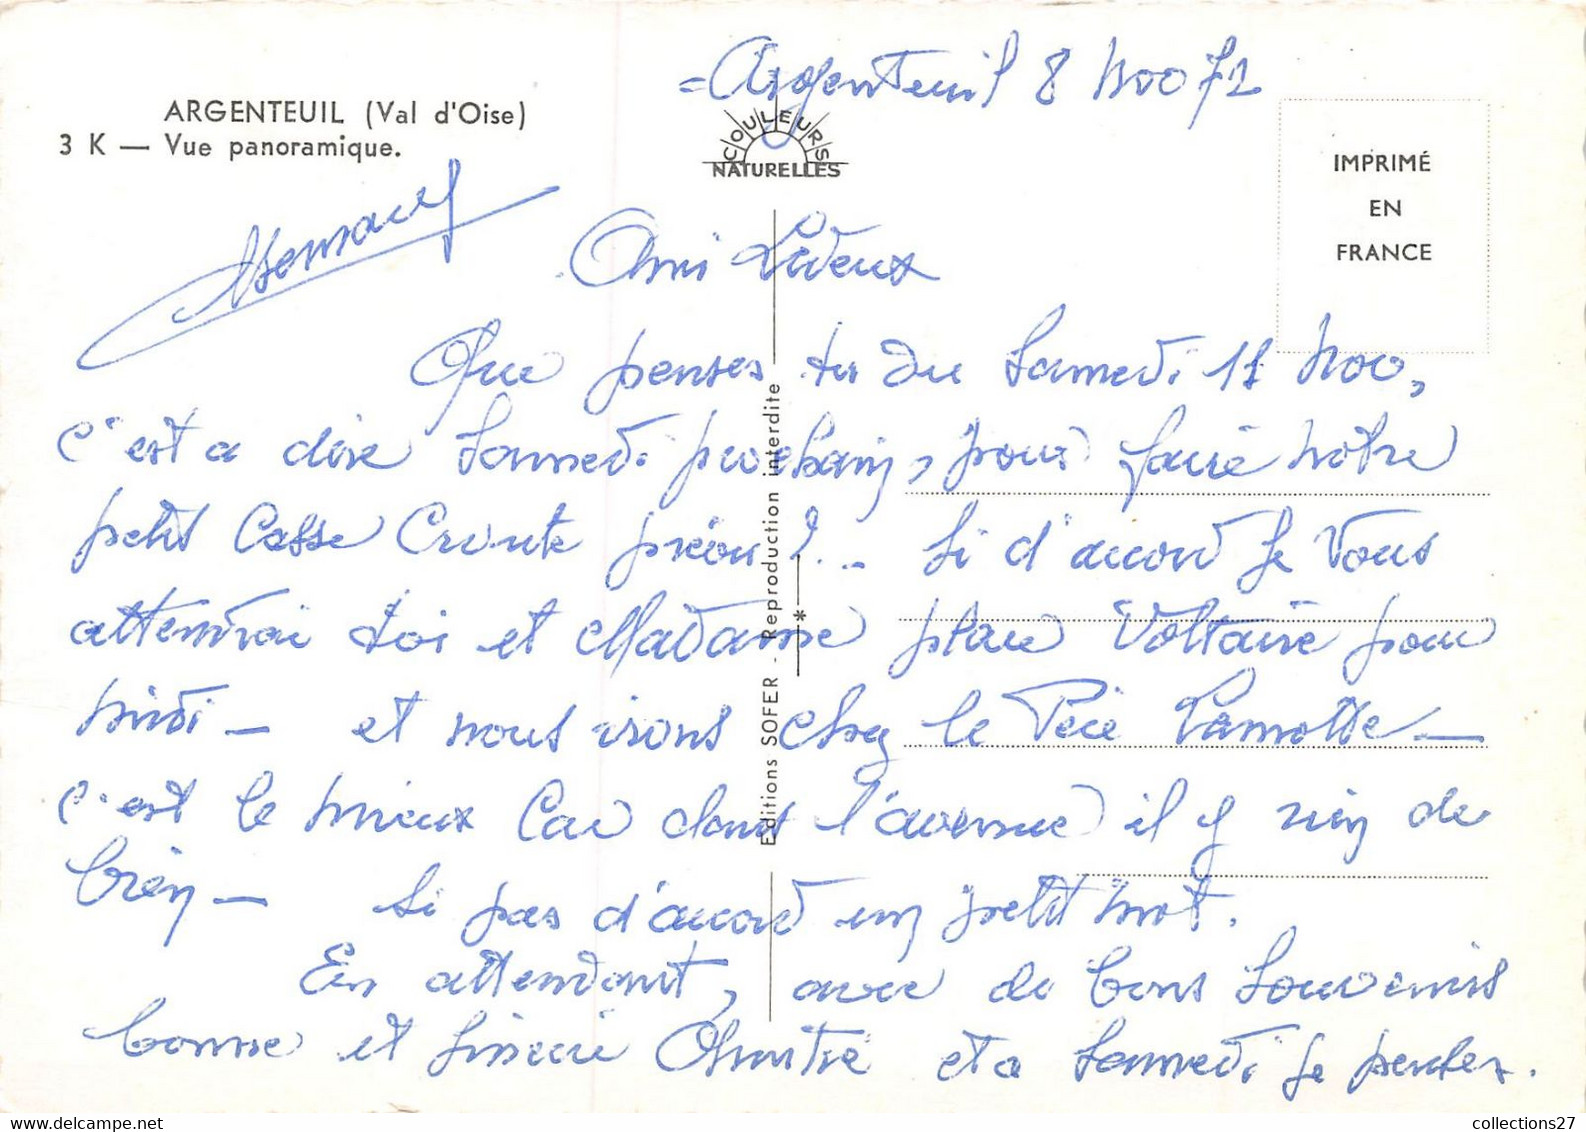 = Argenteuil 8 Nov 72
ARGENTEUIL (Val d'Oise)
3 K — Vue panoramique.
COULEURS
NATURELLES
IMPRIMÉ
EN
FRANCE
Ami Leveux
Que penses tu du Samedi 11 Nov,
c'est a dire Samedi prochain, pour faire notre
petit Casse Croute prévu ? .. Si d'accord Je Vous
attendrai toi et Madame place Voltaire pour
midi — et nous irons chez le Père Lamotte —
c'est le mieux Car dans l'avenue il y rien de
bien — Si pas d'accord un petit mot.
En attendant, avec de bons Souvenirs
bonne et sincère Amitié et a Samedi je penses.
Editions SOFER - Reproduction interdite
collections27